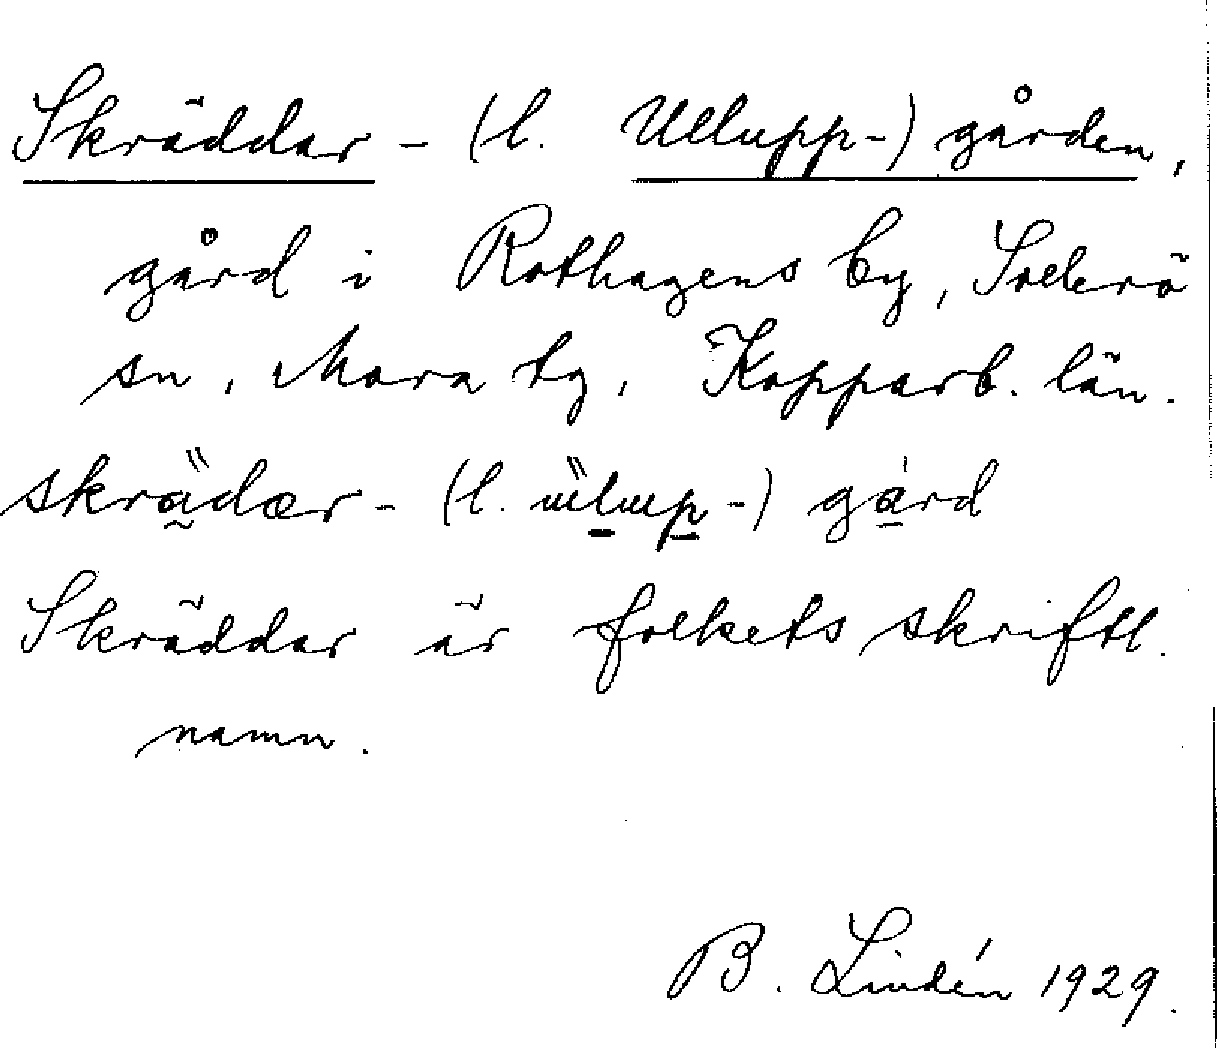 Skräddar - (l. Ullupp-) gården,
gård i Rothagens by, Sollerö
sn, Mora tg, Kopparb. län.
skrädær- (l. ülup-) gård
Skräddar är folkets skriftl.
namn.
B. Lindén 1929.